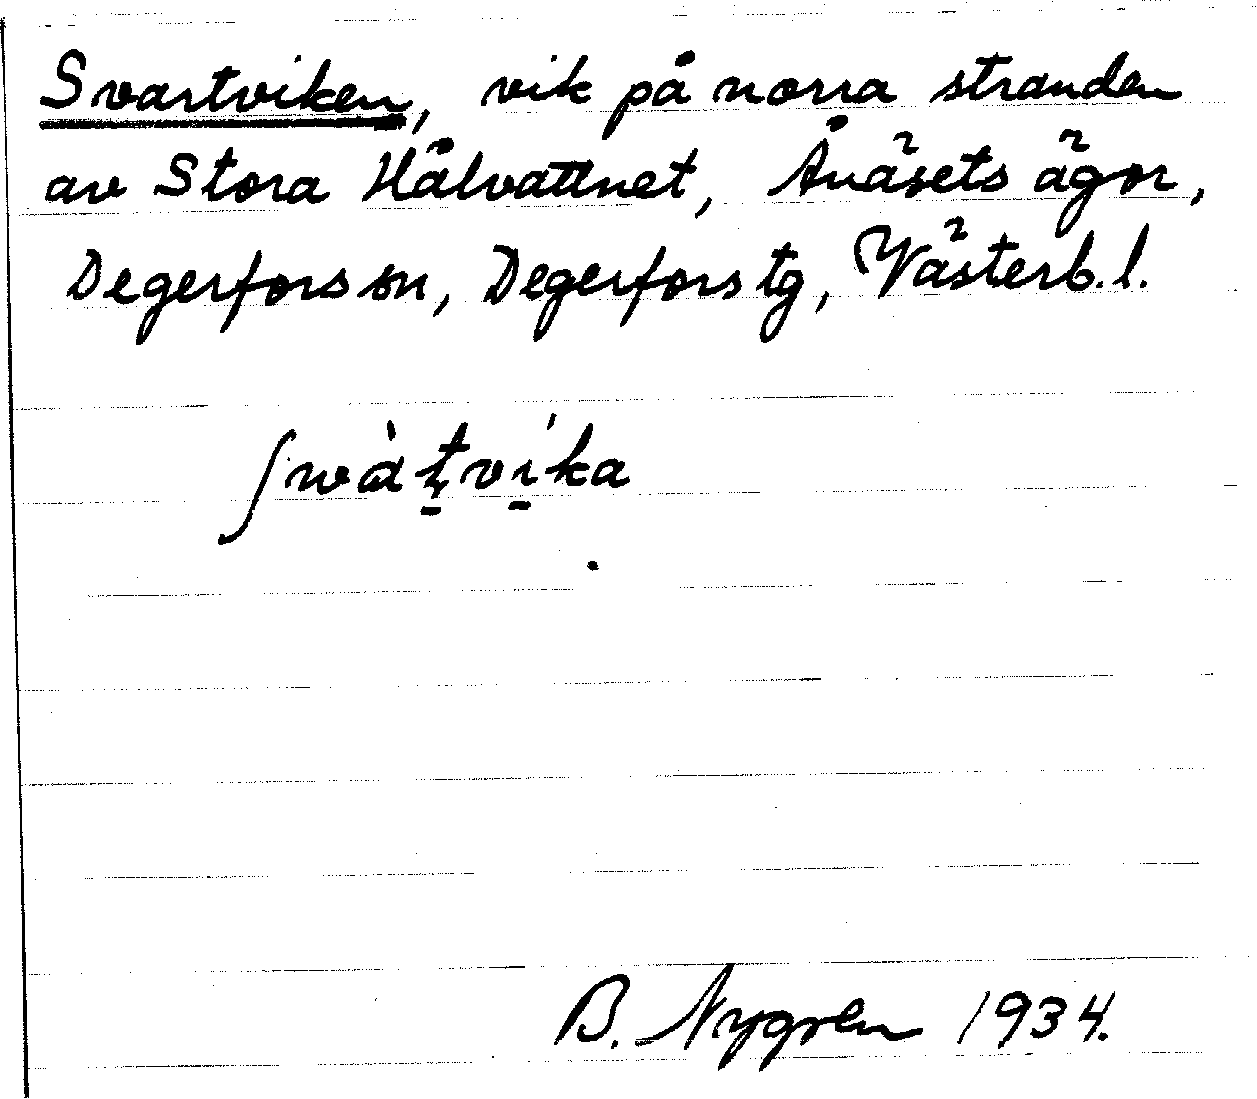 Svartviken, vik på norra stranden
av Stora Hålvattnet, Ånäsets ägor,
Degerfors sn, Degerfors tg, Västerb. l.
ʃwàt̠vi̠ka
B. Nygren 1934.